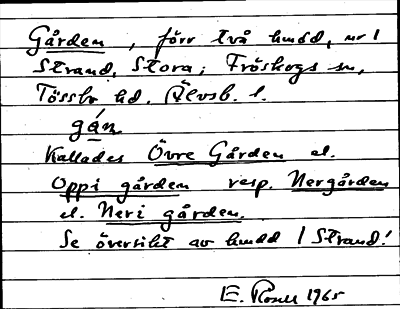 Gården, förr två hmdd, nr 1
Strand, Stora; Fröskogs sn,
Tössbo hd. Älvsb. l.
gán
Kallades Övre Gården el.
Oppi gården resp. Nergården
el. Neri gården.
Se översikt av hmdd / Strand!
E. 1965